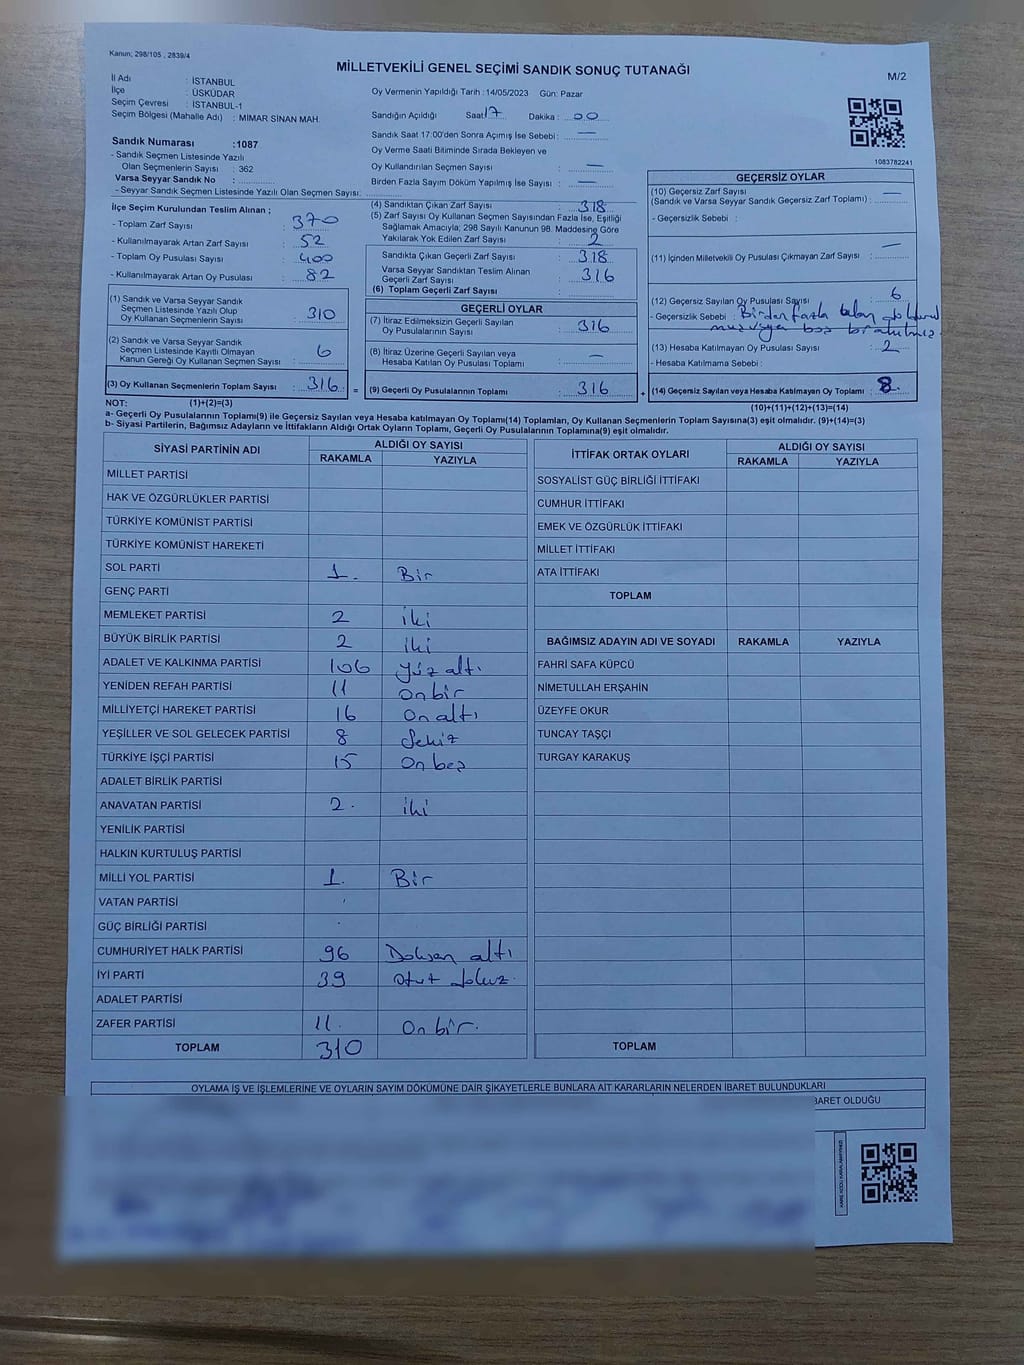 Kanun; 298/105 , 2839/4
MİLLETVEKİLİ GENEL SEÇİMİ SANDIK SONUÇ TUTANAĞI
M/2
İl Adı : İSTANBUL
İlçe : ÜSKÜDAR
Seçim Çevresi : İSTANBUL-1
Seçim Bölgesi (Mahalle Adı) : MİMAR SİNAN MAH.
Sandık Numarası :1087
- Sandık Seçmen Listesinde Yazılı
Olan Seçmenlerin Sayısı : 362
Varsa Seyyar Sandık No :
- Seyyar Sandık Seçmen Listesinde Yazılı Olan Seçmen Sayısı:
Oy Vermenin Yapıldığı Tarih : 14/05/2023 Gün: Pazar
Sandığın Açıldığı Saat 17 Dakika : 00
Sandık Saat 17:00'den Sonra Açımış İse Sebebi : —
Oy Verme Saati Bitiminde Sırada Bekleyen ve
Oy Kullandırılan Seçmen Sayısı —
Birden Fazla Sayım Döküm Yapılmış İse Sayısı : —
1083782241
İlçe Seçim Kurulundan Teslim Alınan ;
- Toplam Zarf Sayısı : 370
- Kullanılmayarak Artan Zarf Sayısı : 52
- Toplam Oy Pusulası Sayısı : 400
- Kullanılmayarak Artan Oy Pusulası : 82
(1) Sandık ve Varsa Seyyar Sandık
Seçmen Listesinde Yazılı Olup
Oy Kullanan Seçmenlerin Sayısı : 310
(2) Sandık ve Varsa Seyyar Sandık
Seçmen Listesinde Kayıtlı Olmayan
Kanun Gereği Oy Kullanan Seçmen Sayısı : 6
(3) Oy Kullanan Seçmenlerin Toplam Sayısı : 316 =
(4) Sandıktan Çıkan Zarf Sayısı : 318
(5) Zarf Sayısı Oy Kullanan Seçmen Sayısından Fazla İse, Eşitliği
Sağlamak Amacıyla; 298 Sayılı Kanunun 98. Maddesine Göre
Yakılarak Yok Edilen Zarf Sayısı : 2
Sandıkta Çıkan Geçerli Zarf Sayısı : 318
Varsa Seyyar Sandıktan Teslim Alınan
Geçerli Zarf Sayısı : 316
(6) Toplam Geçerli Zarf Sayısı :
GEÇERLİ OYLAR
(7) İtiraz Edilmeksizin Geçerli Sayılan
Oy Pusulalarının Sayısı : 316
(8) İtiraz Üzerine Geçerli Sayılan veya
Hesaba Katılan Oy Pusulası Toplamı : —
(9) Geçerli Oy Pusulalarının Toplamı : 316 +
GEÇERSİZ OYLAR
(10) Geçersiz Zarf Sayısı —
(Sandık ve Varsa Seyyar Sandık Geçersiz Zarf Toplamı) :
- Geçersizlik Sebebi :
(11) İçinden Milletvekili Oy Pusulası Çıkmayan Zarf Sayısı : —
(12) Geçersiz Sayılan Oy Pusulası Sayısı : 6
- Geçersizlik Sebebi : Birden fazla
(13) Hesaba Katılmayan Oy Pusulası Sayısı : 2
- Hesaba Katılmama Sebebi :
(14) Geçersiz Sayılan veya Hesaba Katılmayan Oy Toplamı : 8
NOT: (1)+(2)=(3)
(10)+(11)+(12)+(13)=(14)
a- Geçerli Oy Pusulalarının Toplamı(9) ile Geçersiz Sayılan veya Hesaba katılmayan Oy Toplamı(14) Toplamları, Oy Kullanan Seçmenlerin Toplam Sayısına(3) eşit olmalıdır. (9)+(14)=(3)
b- Siyasi Partilerin, Bağımsız Adayların ve İttifakların Aldığı Ortak Oyların Toplamı, Geçerli Oy Pusulalarının Toplamına(9) eşit olmalıdır.
SİYASİ PARTİNİN ADI ALDIĞI OY SAYISI
RAKAMLA YAZIYLA
MİLLET PARTİSİ
HAK VE ÖZGÜRLÜKLER PARTİSİ
TÜRKİYE KOMÜNİST PARTİSİ
TÜRKİYE KOMÜNİST HAREKETİ
SOL PARTİ 1. Bir
GENÇ PARTİ
MEMLEKET PARTİSİ 2 iki
BÜYÜK BİRLİK PARTİSİ 2 iki
ADALET VE KALKINMA PARTİSİ 106 yüz altı
YENİDEN REFAH PARTİSİ 11 on bir
MİLLİYETÇİ HAREKET PARTİSİ 16 On altı
YEŞİLLER VE SOL GELECEK PARTİSİ 8 Sekiz
TÜRKİYE İŞÇİ PARTİSİ 15 On beş
ADALET BİRLİK PARTİSİ
ANAVATAN PARTİSİ 2. iki
YENİLİK PARTİSİ
HALKIN KURTULUŞ PARTİSİ
MİLLİ YOL PARTİSİ 1. Bir
VATAN PARTİSİ
GÜÇ BİRLİĞİ PARTİSİ
CUMHURİYET HALK PARTİSİ 96 Doksan altı
İYİ PARTİ 39 otuz dokuz.
ADALET PARTİSİ
ZAFER PARTİSİ 11. On bir.
TOPLAM 310
İTTİFAK ORTAK OYLARI ALDIĞI OY SAYISI
RAKAMLA YAZIYLA
SOSYALİST GÜÇ BİRLİĞİ İTTİFAKI
CUMHUR İTTİFAKI
EMEK VE ÖZGÜRLÜK İTTİFAKI
MİLLET İTTİFAKI
ATA İTTİFAKI
TOPLAM
BAĞIMSIZ ADAYIN ADI VE SOYADI RAKAMLA YAZIYLA
FAHRİ SAFA KÜPCÜ
NİMETULLAH ERŞAHİN
ÜZEYFE OKUR
TUNCAY TAŞÇI
TURGAY KARAKUŞ
TOPLAM
OYLAMA İŞ VE İŞLEMLERİNE VE OYLARIN SAYIM DÖKÜMÜNE DAİR ŞİKAYETLERLE BUNLARA AİT KARARLARIN NELERDEN İBARET BULUNDUKLARI
BARET OLDUĞU